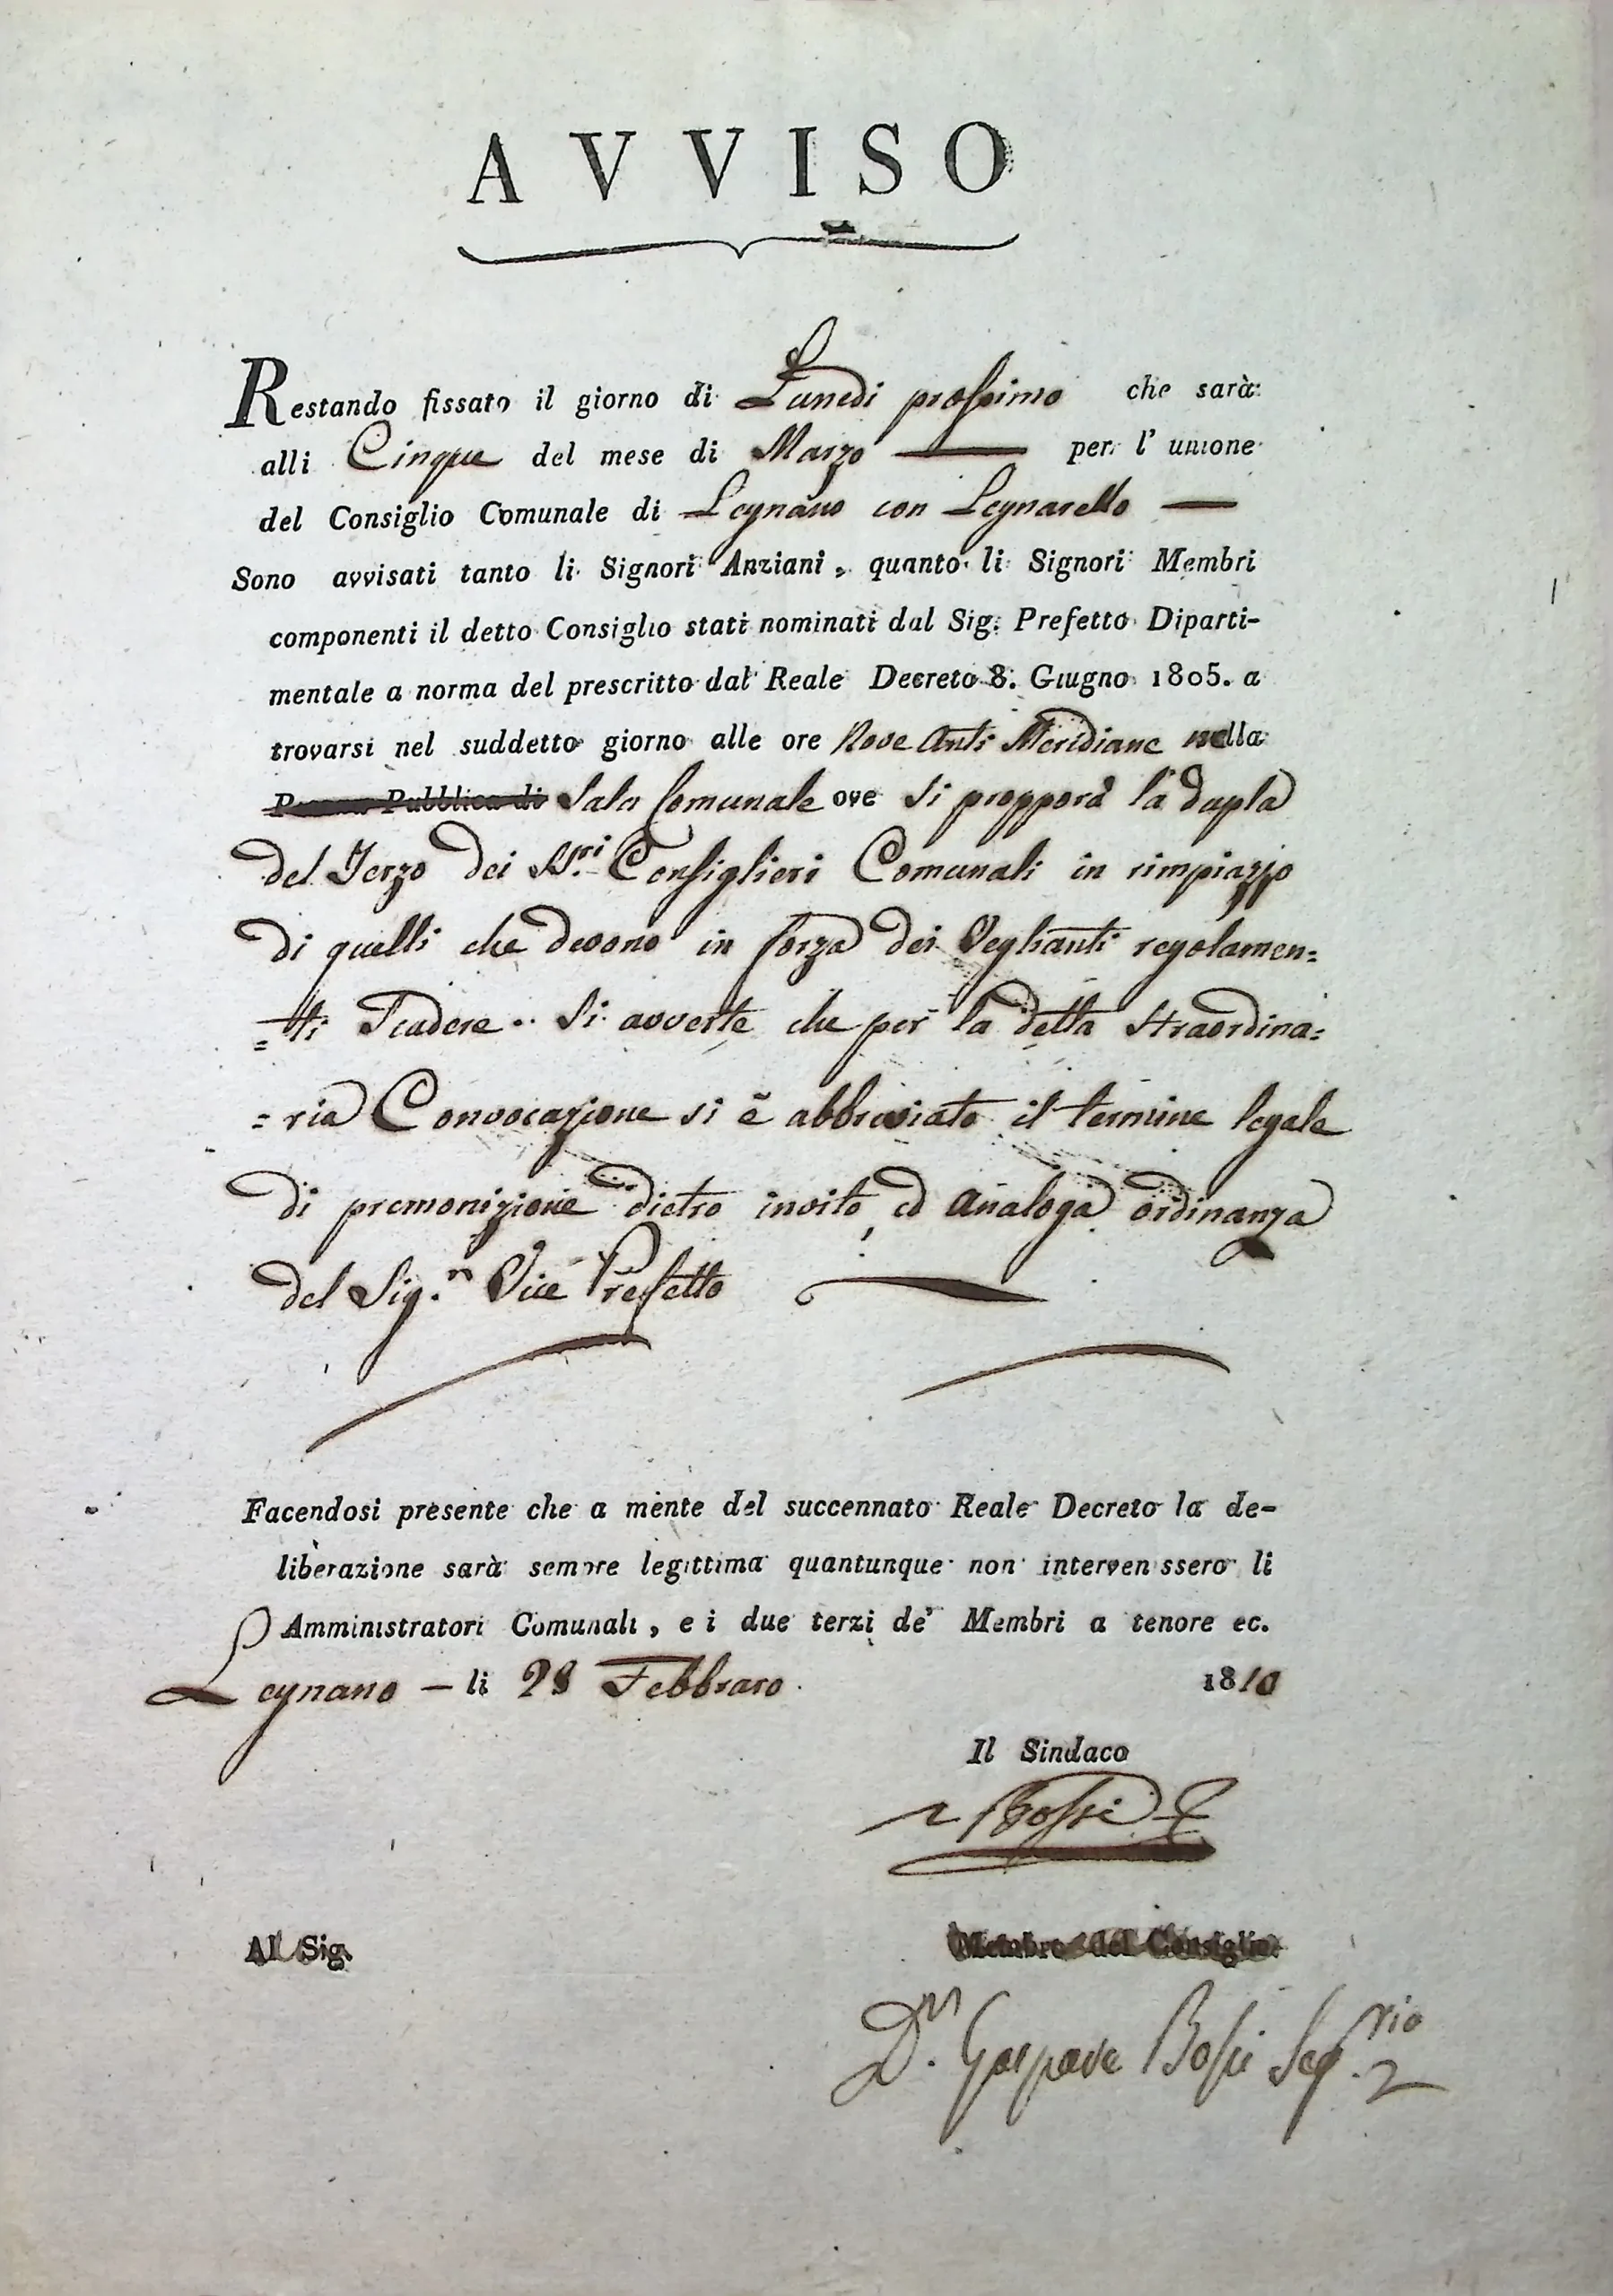 AVVISO
Restando fissato il giorno di Lunedi prossimo che sarà
alli Cinque del mese di Marzo per l' unione
del Consiglio Comunale di Legnano con Legnarello
Sono avvisati tanto li Signori Anziani, quanto li Signori Membri
componenti il detto Consiglio stati nominati dal Sig. Prefetto Diparti-
mentale a norma del prescritto dal Reale Decreto 8. Giugno 1805. a
trovarsi nel suddetto giorno alle ore Nove Anti Meridiane nella
Pubblica di Sala Comunale ove si propporà la dupla
del Terzo dei SS.ri Consiglieri Comunali in rimpiazzo
di quelli che devono in forza dei Veglianti regolamen=
=ti Scadere.. Si avverte che per la detta straordina=
=ria Convocazione si è abbreviato il termine legale
di premonizione dietro invito, ed Analoga ordinanza
del Sig.r Vice Prefetto
Facendosi presente che a mente del succennato Reale Decreto la de-
liberazione sarà sempre legittima quantunque non intervenissero li
Amministratori Comunali, e i due terzi de' Membri a tenore ec.
Legnano - li 28 Febbraro. 1810
Il Sindaco
Bossi
Al Sig. Membro del Consiglio
Gaspare Bossi Seg.rio